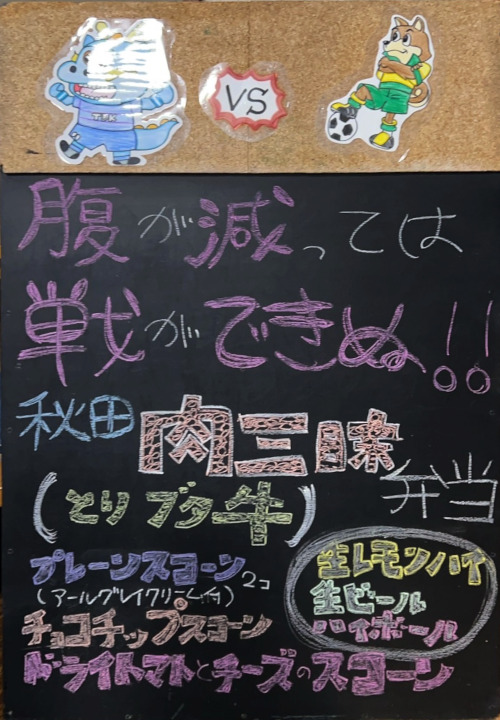 VS
腹が減っては
戦ができぬ!!
秋田 肉三昧 弁当
(とり ブタ 牛)
プレーンスコーン 2コ
(アールグレイクリーム付)
チョコチップスコーン
ドライトマトとチーズのスコーン
生レモンハイ
生ビール
ハイボール